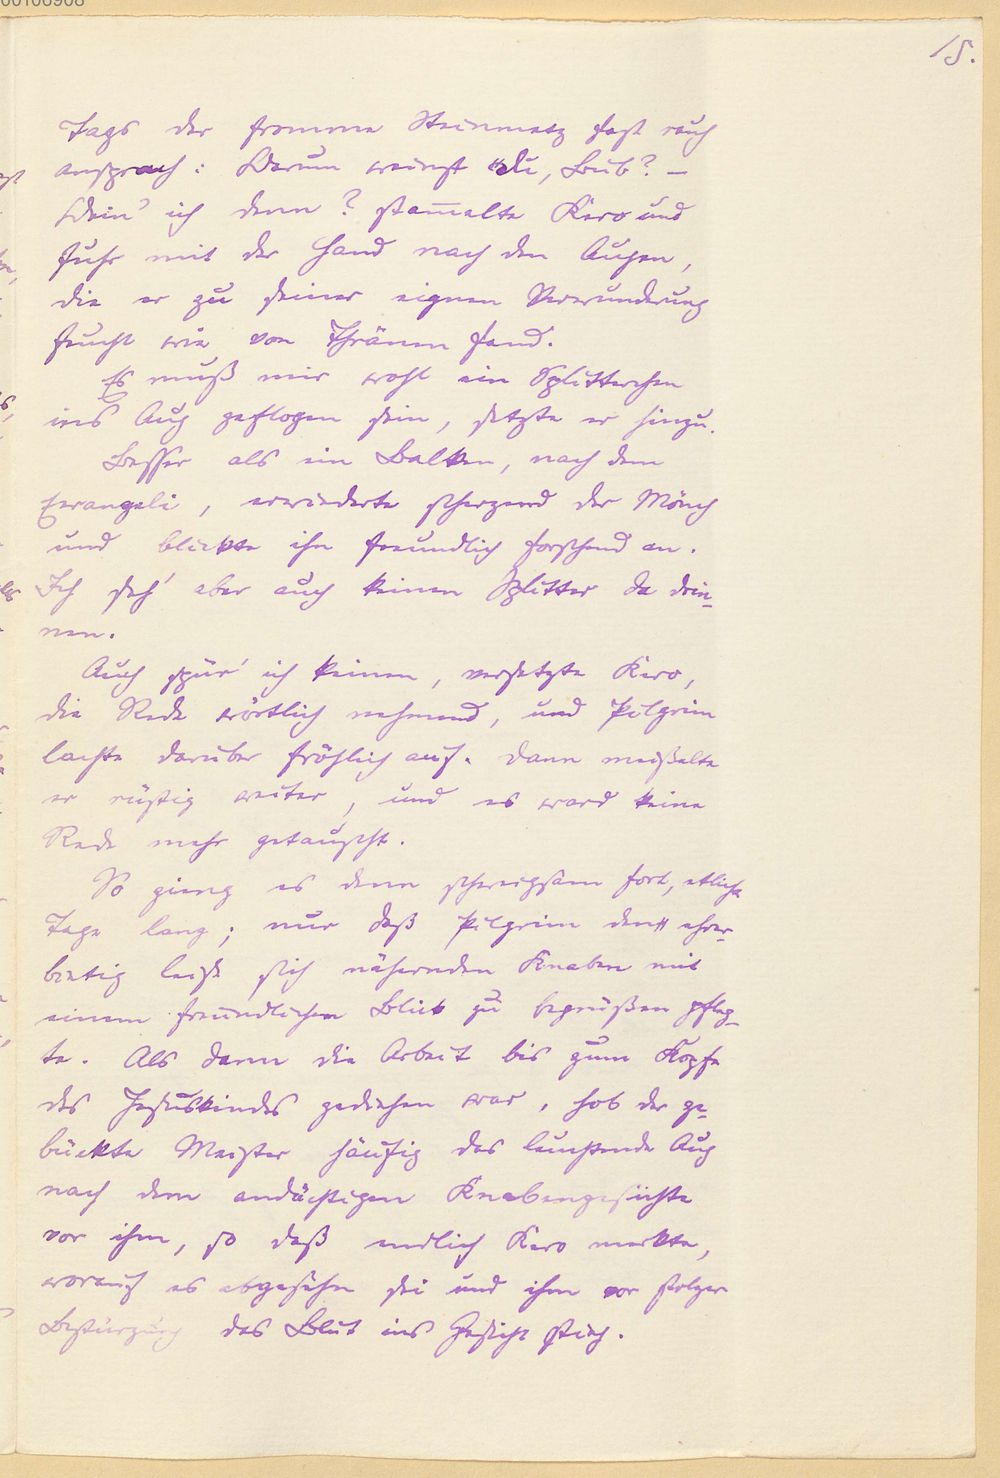 15.
Tags der fromme Steinmetz fast rauh
ansprach: Warum weinst du, Bub? –
Wein' ich denn? stam̅elte Kero und
fuhr mit der Hand nach den Augen,
die er zu seiner eignen Verwunderung
feucht wie von Thränen fand.
Es muß mir wohl ein Splitterchen
ins Aug geflogen sein, setzte er hinzu.
Besser als ein Balken, nach dem
Evangeli, erwiederte scherzend der Mönch
und blickte ihn freundlich forschend an.
Ich seh' aber auch keinen Splitter da drin-
nen.
Auch spür' ich keinen, versetzte Kero,
die Rede wörtlich nehmend, und Pilgrim
lachte darüber fröhlich auf. Dann meißelte
er rüstig weiter, und es ward keine
Rede mehr getauscht.
So gieng es denn schweigsam fort, etliche
Tage lang; nur daß Pilgrim den ehrer-
bietig leise sich nähernden Knaben mit
einem freundlichen Blick zu begrüßen pfleg-
te. Als dann die Arbeit bis zum Kopfe
des Jesuskindes gediehen war, hob der ge-
bückte Meister häufig das leuchtende Aug
nach dem andächtigen Knabengesichte
vor ihm, so daß endlich Kero merkte,
worauf es abgesehn sei und ihm vor stolzer
Bestürzung das Blut ins Gesicht stieg.